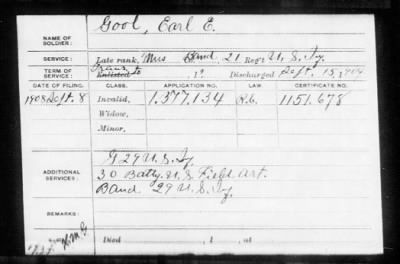 Gool, Earl E.
NAME OF SOLDIER:
SERVICE: Late rank, Mus Band 21 Reg't U. S. Iy.
TERM OF SERVICE: Trans to Enlisted , 1? Discharged Sept. 15, 1904
DATE OF FILING. CLASS. APPLICATION NO. LAW. CERTIFICATE NO.
1908 Sept. 8 Invalid, 1.377.134 R.G. 1151.678
Widow,
Minor,
G 29 U. S. Iy.
ADDITIONAL SERVICES: 30 Batty. U. S. Field Art.
Band 29 U. S. Iy.
REMARKS:
Died , 1 , at